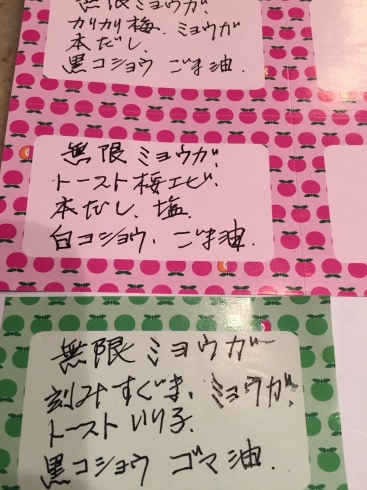 無限ミョウガ.
カリカリ梅. ミョウガ
本だし.
黒コショウ ごま油.
無限ミョウガ.
トースト桜エビ.
本だし. 塩.
白コショウ. ごま油.
無限ミョウガ
刻みすぐき. ミョウガ.
トーストいり子.
黒コショウ ゴマ油.